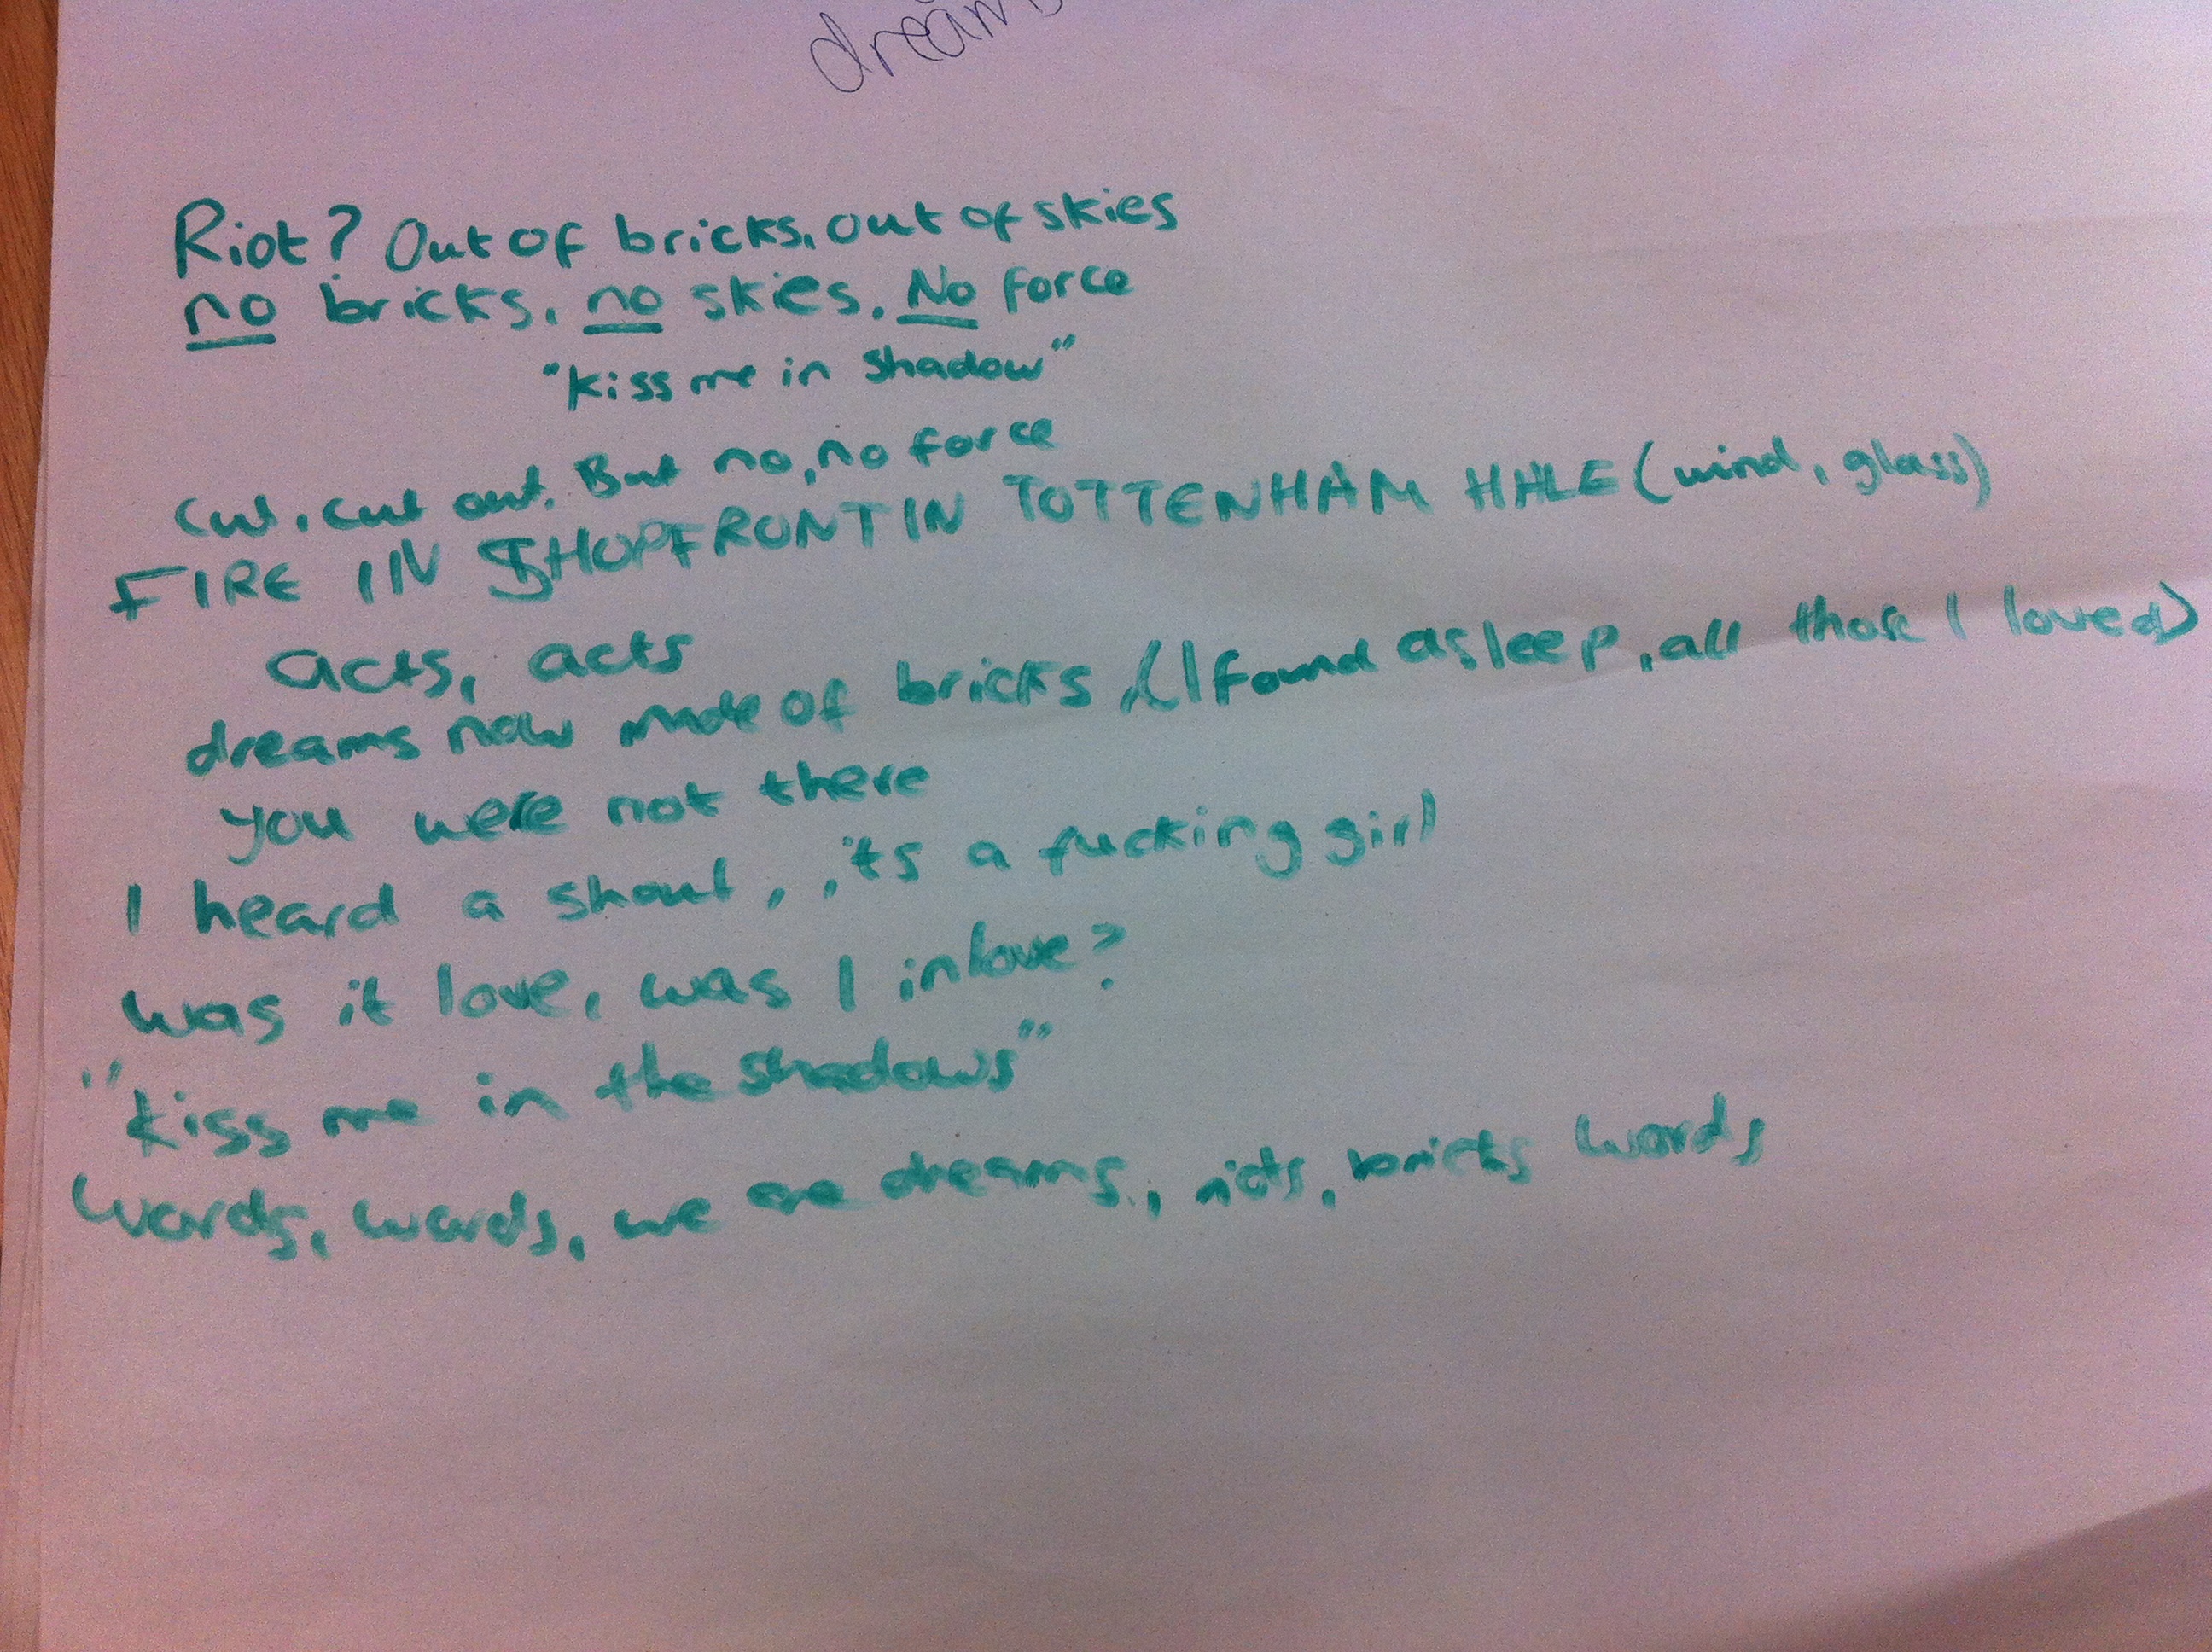 dream
Riot? Out of bricks, out of skies
no bricks, no skies. No force
"kiss me in shadow"
Cut, cut out. But no, no force
FIRE IN SHOPFRONT IN TOTTENHAM HALE (wind, glass)
acts, acts
dreams now made of bricks (I found asleep, all those I loved)
you were not there
I heard a shout, its a fucking girl
was it love, was I in love?
"kiss me in the shadows"
words, words, we are dreams, riots, bricks words